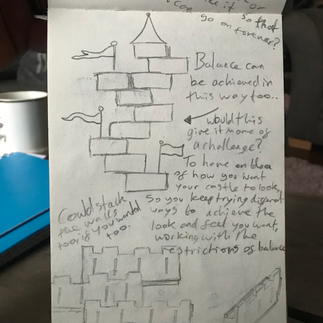 or
can
so that
go on forever?
Balance can
be achieved in
this way too..
would this
give it more of
a challenge?
To have an idea
of how you want
your castle to look,
So you keep trying different
ways to achieve the
look and feel you want,
working with the
restrictions of balance
Could stack
the walls
too if you wanted
too.